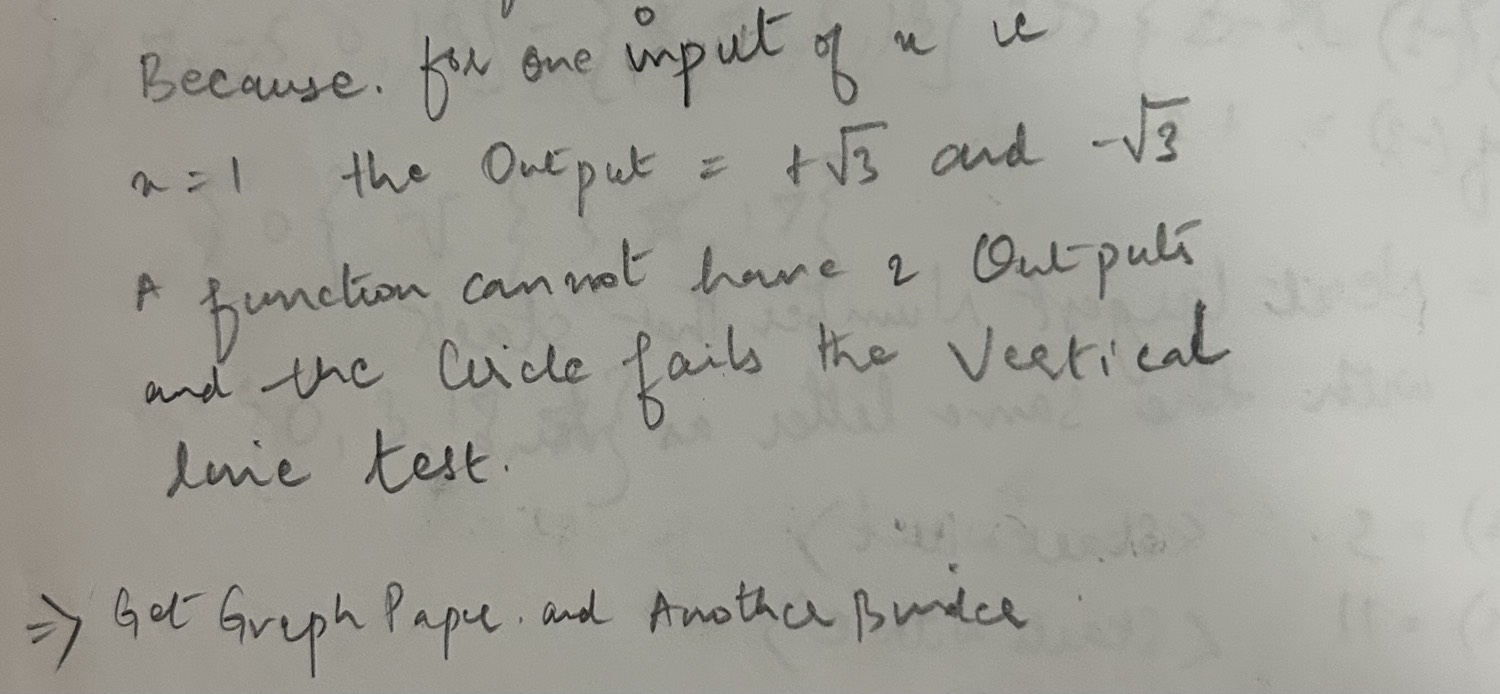 Because. for one input of x ie
x = 1 the Output = +√3 and -√3
A function cannot have 2 Outputs
and the Circle fails the Vertical
line test.
⇒ Get Graph Paper. and Another Binder